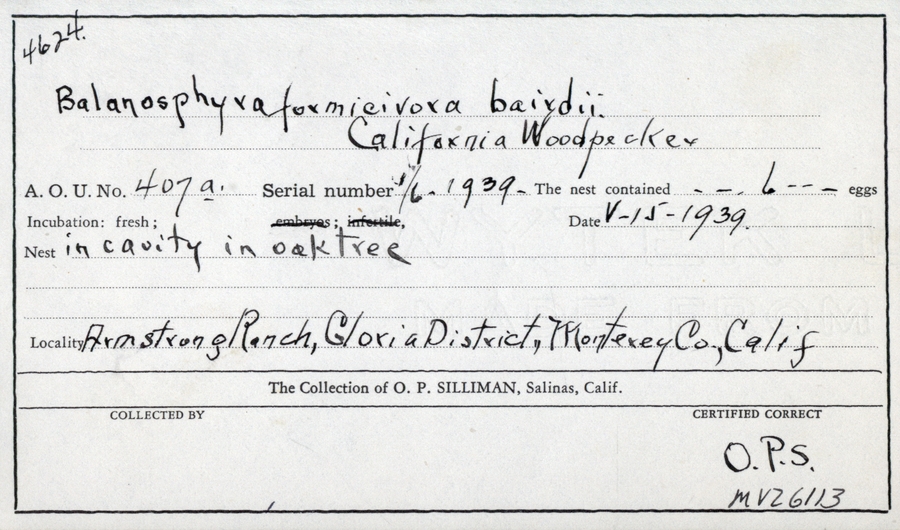 4624.
Balanosphyra formicivora bairdii.
California Woodpecker
A. O. U. No. 407a. Serial number 1/6 - 1939 - The nest contained - - - 6 - - - eggs
Incubation: fresh; embryos; infertile, Date V-15-1939.
Nest in cavity in oak tree
Locality Armstrong Ranch, Gloria District, Monterey Co., Calif
The Collection of O. P. SILLIMAN, Salinas, Calif.
COLLECTED BY CERTIFIED CORRECT
O.P.S.
MVZ6113